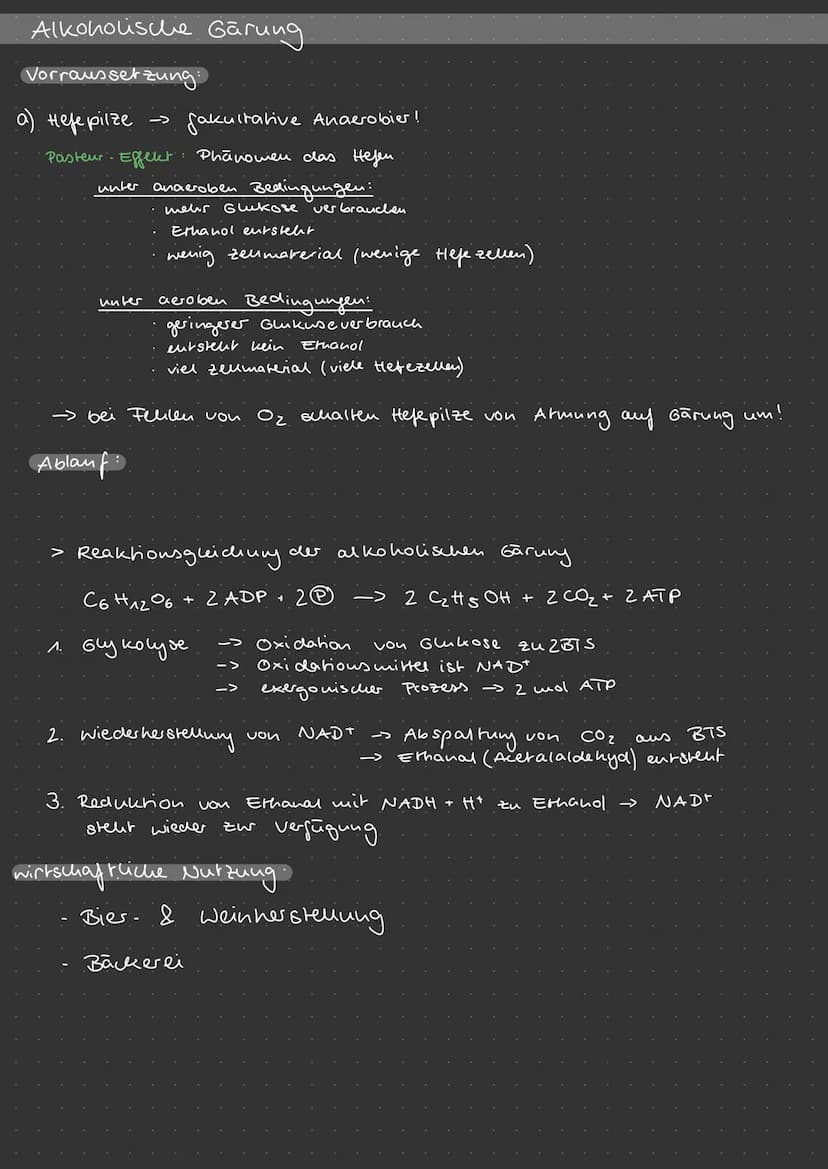 Alkoholische Gärung
Vorraussetzung:
a) Hefepilze → fakultative Anaerobier!
Pasteur-Effekt: Phänomen das Hefen
unter anaeroben Bedingungen:
· mehr Glukose verbrauchen
· Ethanol entsteht
· wenig Zellmaterial (wenige Hefezellen)
unter aeroben Bedingungen:
· geringerer Glukoseverbrauch
· entsteht kein Ethanol
· viel Zellmaterial (viele Hefezellen)
→ bei Fehlen von O₂ schalten Hefepilze von Atmung auf Gärung um!
Ablauf:
> Reaktionsgleichung der alkoholischen Gärung
C₆H₁₂O₆ + 2 ADP + 2 Ⓟ —> 2 C₂H₅OH + 2 CO₂ + 2 ATP
1. Glykolyse -> Oxidation von Glukose zu 2 BTS
-> Oxidationsmittel ist NAD⁺
-> exergonischer Prozess → 2 mol ATP
2. Wiederherstellung von NAD⁺ → Abspaltung von CO₂ aus BTS
→ Ethanal (Acetalaldehyd) entsteht
3. Reduktion von Ethanal mit NADH + H⁺ zu Ethanol → NAD⁺
steht wieder zur Verfügung
wirtschaftliche Nutzung:
- Bier- & Weinherstellung
- Bäckerei